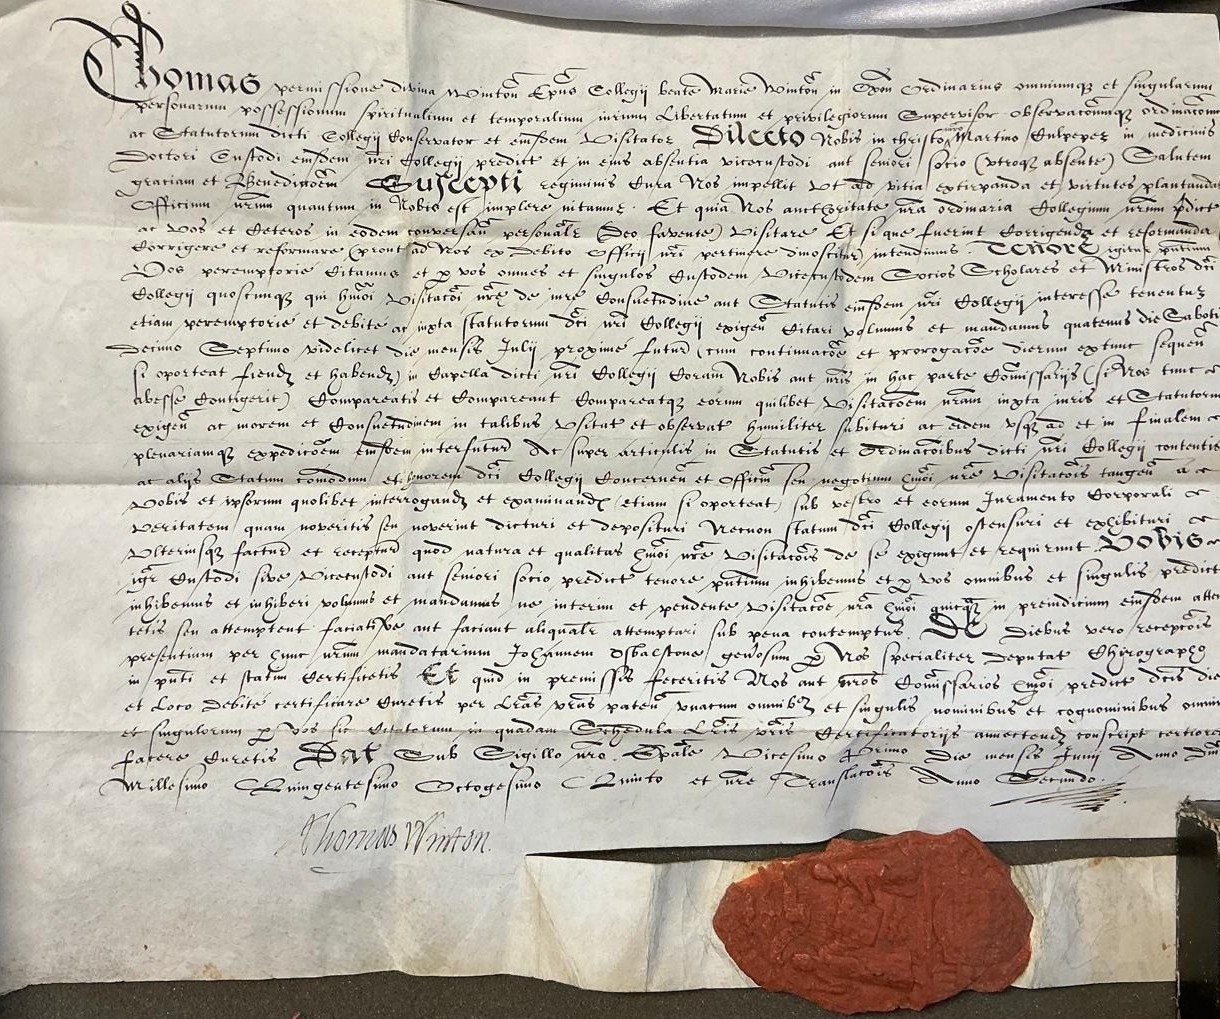 Thomas permissione divina Wintoñ Ep̃us Collegij beate Marie Wintoñ in Oxoñ Ordinarius omniumqꝫ et singularum
personarum possessionum spiritualium et temporalium iurium Libertatum et privilegiorum Supervisor observacõnumqꝫ ordinacõnu
ac Statutorum dicti Collegij Conservator et eiusdem Visitator Dilecto Nobis in christo Martino Culpeper in medicinis
Doctori Custodi eiusdem nr̃i Collegij predict et in eius absentia vicecustodi aut seniori socio (vtroqꝫ absente) Salutem
graciam et Benedictõem Suscepti regiminis Cura Nos impellit Vt ad vitia extirpanda et virtutes plantandas
Officium nr̃um quantum in Nobis est implere nitamur. Et quia Nos aucthoritate nr̃a ordinaria Collegium nr̃um p̃dict
ac Vos et Ceteros in eodem conversañ personalr̃ (Deo favente) Visitare Et si que fuerint Corrigenda et reformanda
Corrigere et reformare (prout ad Nos ex debito Officij nr̃i pertinere dinoscitur) intendimus Tenore igitur p̃ntium
Vos peremptorie Citamus et ꝑ vos omnes et singulos Custodem Vicecustodem Socios Scholares et Ministros dc̃i
Collegij quoscumqꝫ qui hmõi Visitacõi nr̃e de iure Consuetudine aut Statutis eiusdem nr̃i Collegij interesse tenentur
etiam peremptorie et debite ac iuxta statutorum dc̃i nr̃i Collegij exigeñ Citari volumus et mandamus quatenus die Saboti
decimo Septimo videlicet die mensis Julij proxime futur̃ (cum continuacõe et prorogacõe dierum extunc sequeñ
si oporteat fiend et habend) in Capella dicti nr̃i Collegij Coram Nobis aut nr̃is in hac parte Com̃issarijs (si Nos tunc
abesse Contigerit) Compareatis et Compareant Compareatqꝫ eorum quilibet Visitacõem nr̃am iuxta iuris et Statutorum
exigeñ ac morem et Consuetudinem in talibus Vsitat et observat humiliter subituri ac eidem vsqꝫ ad et in finalem
plenariamqꝫ expedicõem eiusdem interfutur̃ Ac super articulis in Statutis et Ordinacõnibus dicti nr̃i Collegij contentis
ac alijs Statum com̃odum et honorem dc̃i Collegij Concerneñ et Officiũ seu negotium hmõi nr̃e Visitacõis tangeñ a
Vobis et ipsorum quolibet interrogand et examinand (etiam si oporteat) sub vestro et eorum Juramento Corporali
Veritatem quam noveritis seu noverint dicturi et deposituri Necnon statum dc̃i Collegij ostensuri et exhibituri
Vlteriusqꝫ factur̃ et receptur̃ quod natura et qualitas hmõi nr̃e Visitacõis de se exigunt et requirunt Vobis
igr̃ Custodi sive Vicecustodi aut seniori socio predict tenore p̃ntium inhibemus et ꝑ vos omnibus et singulis predict
inhibemus et inhiberi volumus et mandamus ne interim et pendente Visitacõe nr̃a hmõi quicqꝫ in preiudicium eiusdem atten
tetis seu attemptent faciatisve aut faciant aliqualr̃ attemptari sub pena contemptus. De diebus vero receptõis
presentium per hunc nr̃um mandatarium Johannem Osbalstone generosum ꝑ Nos specialiter deputat Chirographo
in p̃nti et statim Certificetis Et quid in premissis feceritis Nos aut nr̃os Com̃issarios hmõi predict dictis die
et Loco debite certificare Curetis per Lr̃as vr̃as pateñ vnacum omnibꝫ et singulis nominibus et cognominibus omniu
et singulorum ꝑ vos sic Citatorum in quadam Schedula Lr̃is vr̃is Certificatorijs annectend conscript certiores
facere Curetis Dat Sub Sigillo nr̃o Ep̃ale Vicesimo Primo die mensis Junij Anno Dñi
Millesimo Quingentesimo Octogesimo Quinto et nr̃e Translacõis Anno Secundo.
Thomas Winton.